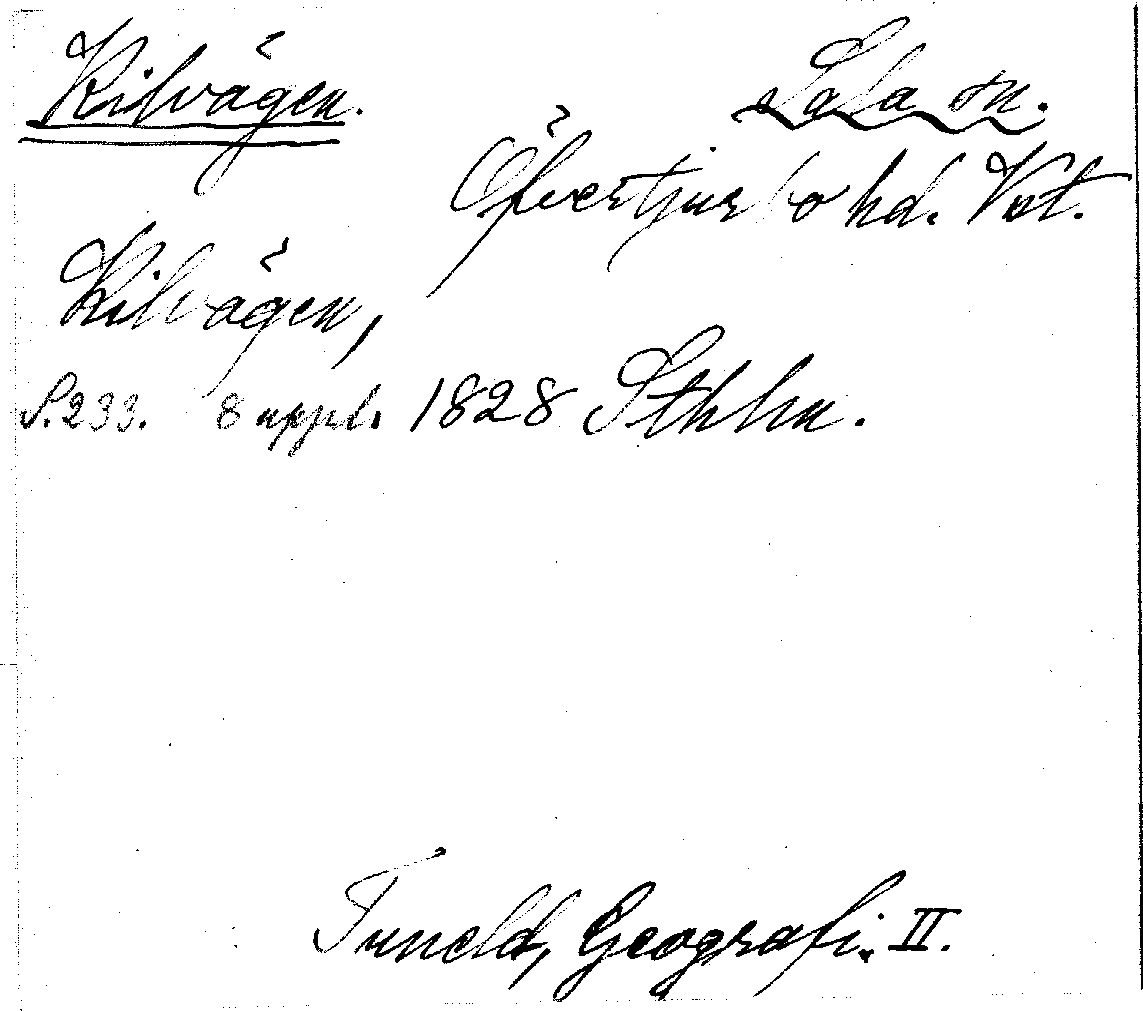 Kilvägen. Sala sn.
Öfvertjurbo hd. Vst.
Kilvägen,
S. 233. 8 uppl. 1828 Sthlm.
Tuneld, Geografi. II.